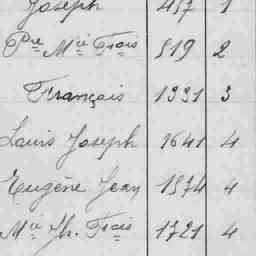 Joseph 457 1
Pre Mie Frois 519 2
Français 1331 3
Louis Joseph 1641 4
Eugène Jean 1574 4
Mie Jh. Frois 1721 4